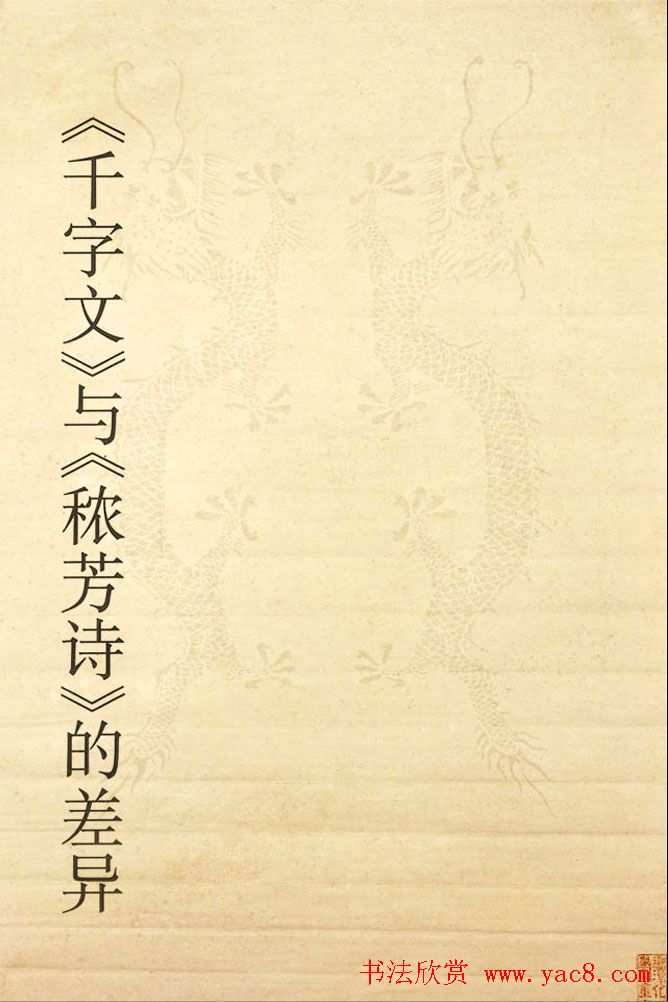 《千字文》与《秾芳诗》的差异
书法欣赏 www.yac8.com